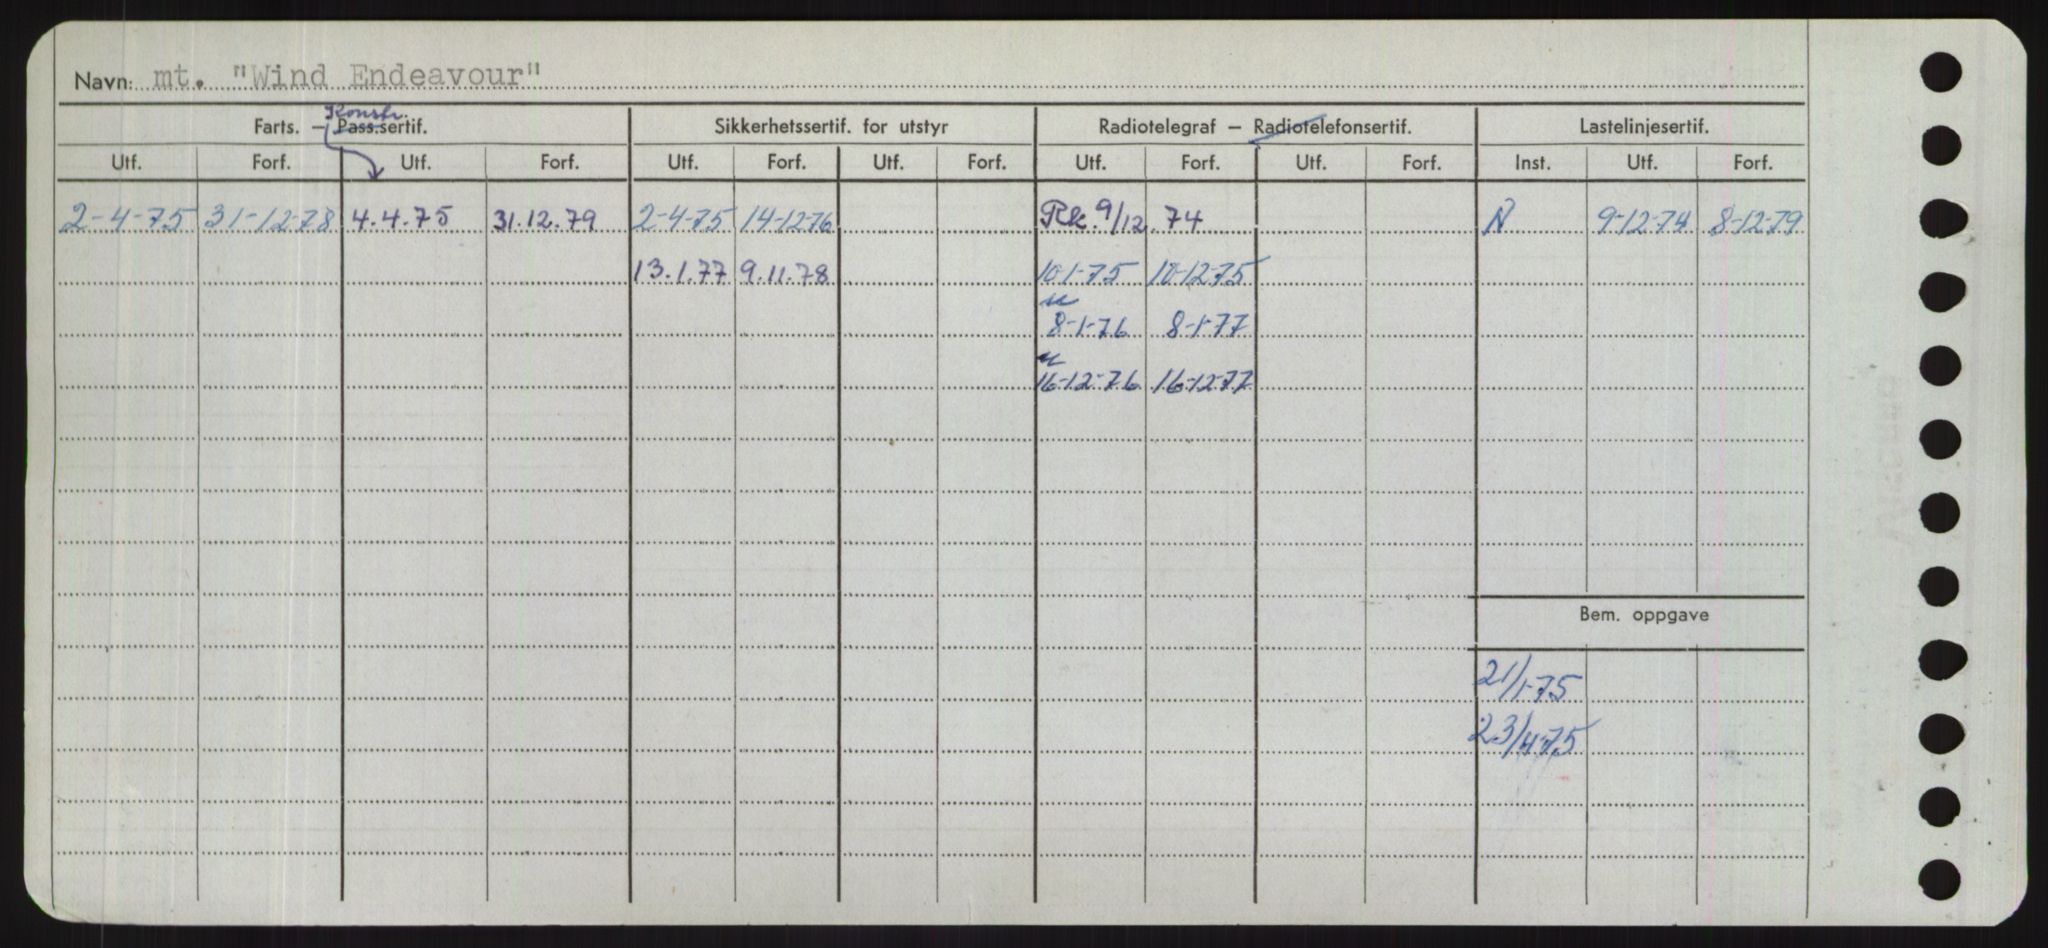 Navn: mt. "Wind Endeavour"
Konstr.
Farts. – Pass.sertif. Sikkerhetssertif. for utstyr Radiotelegraf – Radiotelefonsertif. Lastelinjesertif.
Utf. Forf. Utf. Forf. Utf. Forf. Utf. Forf. Utf. Forf. Utf. Forf. Inst. Utf. Forf.
2-4-75 31-12-78 4.4.75 31.12.79 2-4-75 14-12-76 Rk. 9/12.74 N 9-12-74 8-12-79
13.1.77 9.11.78 10-1-75 10-12-75
8-1-76 8-1-77
16-12-76 16-12-77
Bem. oppgave
21/1-75
23/4-75